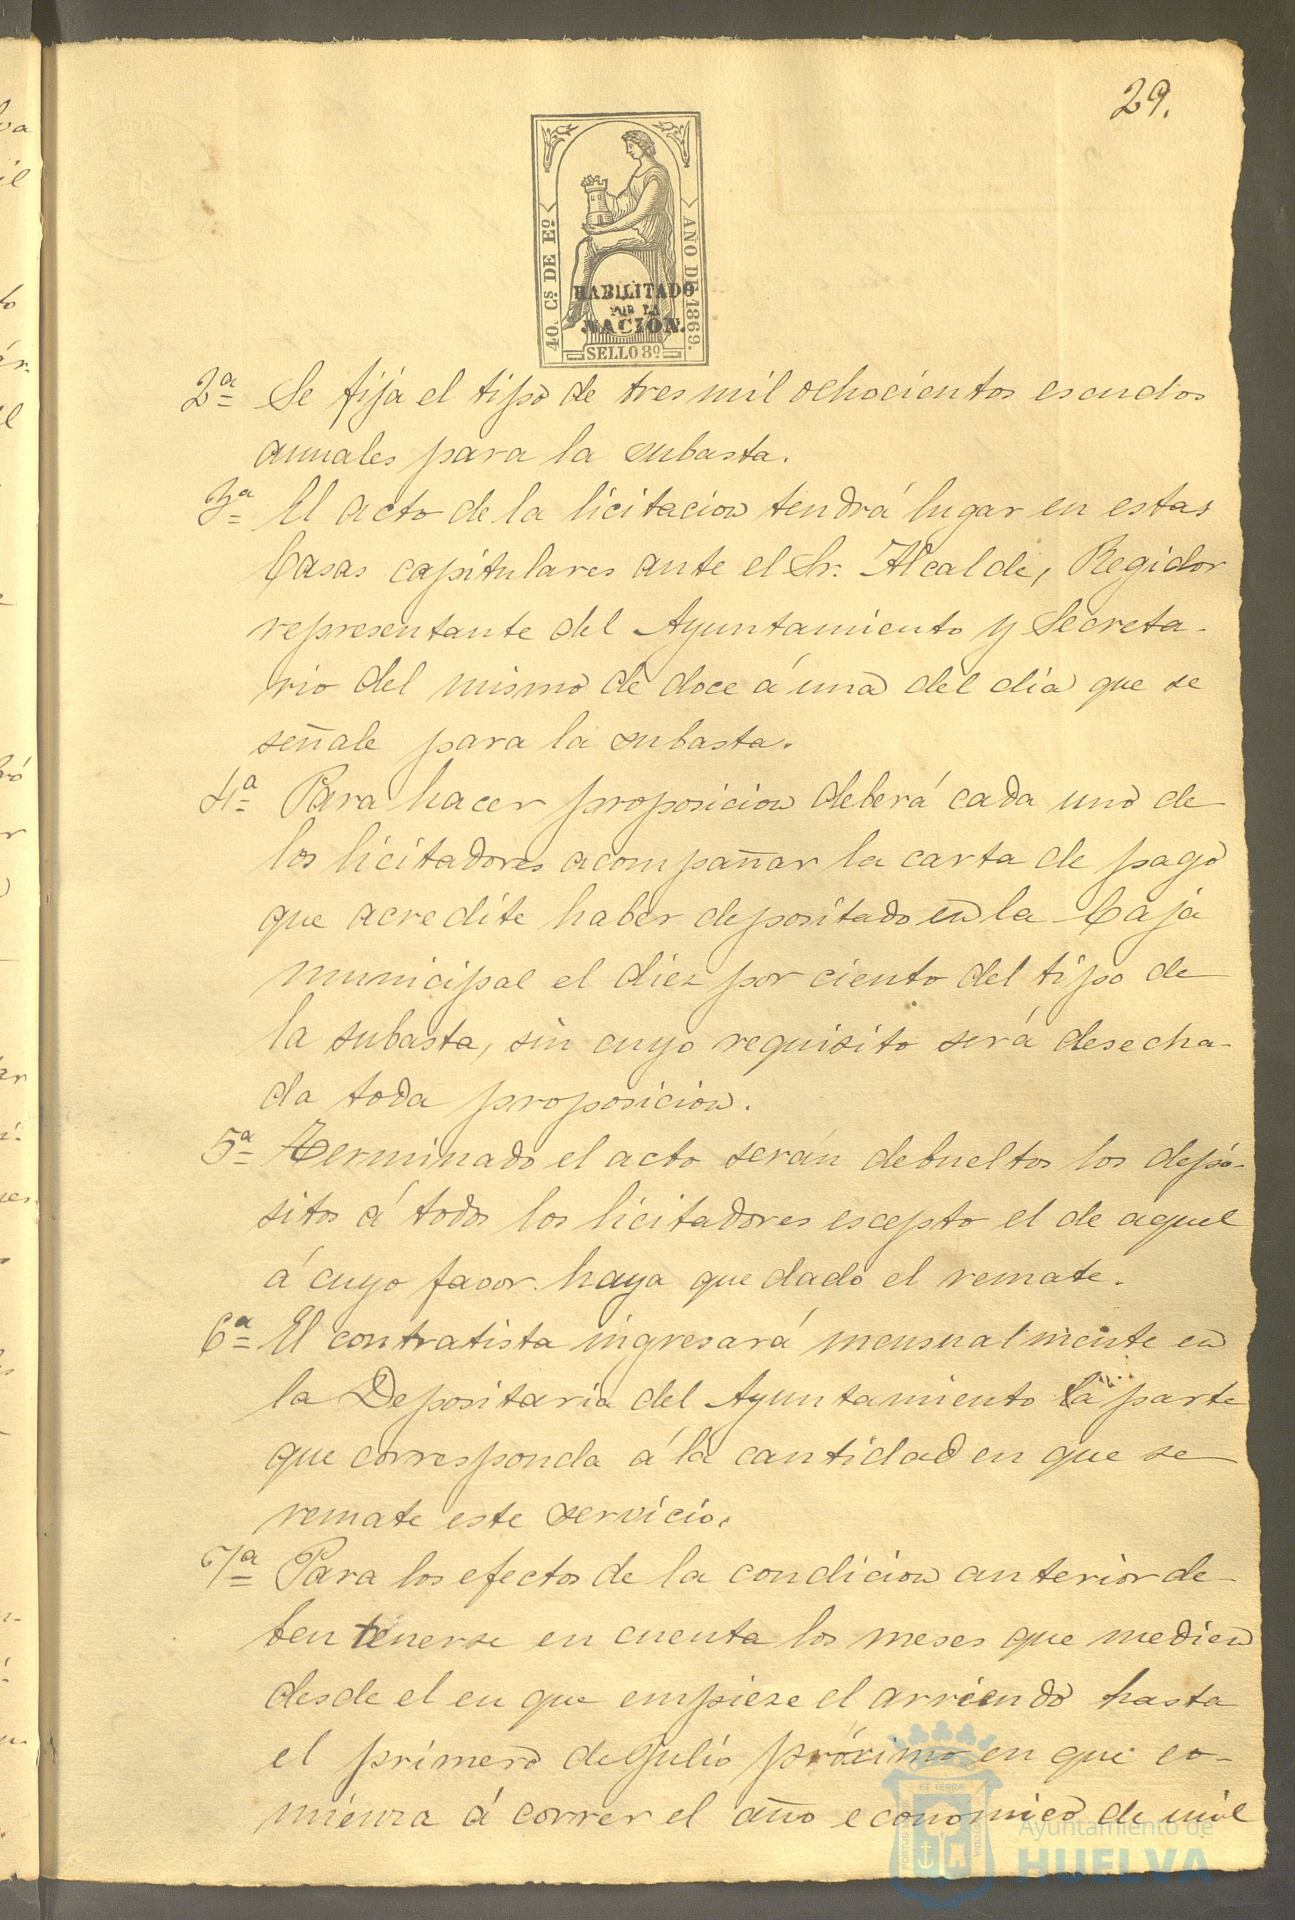 29.
40. Cs DE Eº
AÑO DE 1869.
HABILITADO
POR LA
NACION.
SELLO 8º
2ª Se fija el tipo de tres mil ochocientos escudos
anuales para la subasta.
3ª El acto de la licitacion tendrá lugar en estas
Casas capitulares ante el Sr. Alcalde, Regidor
representante del Ayuntamiento y Secreta-
rio del mismo de doce á una del dia que se
señale para la subasta.
4ª Para hacer proposicion deberá cada uno de
los licitadores acompañar la carta de pago
que acredite haber depositado en la Caja
municipal el diez por ciento del tipo de
la subasta, sin cuyo requisito será desecha-
da toda proposicion.
5ª Terminado el acto serán debueltos los depó-
sitos á todos los licitadores escepto el de aquel
á cuyo favor haya quedado el remate.
6ª El contratista ingresará mensualmente en
la Depositaria del Ayuntamiento la parte
que corresponda á la cantidad en que se
remate este servicio.
7ª Para los efectos de la condicion anterior de-
ben tenerse en cuenta los meses que medien
desde el en que empieze el arriendo hasta
el primero de Julio próximo en que co-
mienza á correr el año economico de mil
Ayuntamiento de
HUELVA